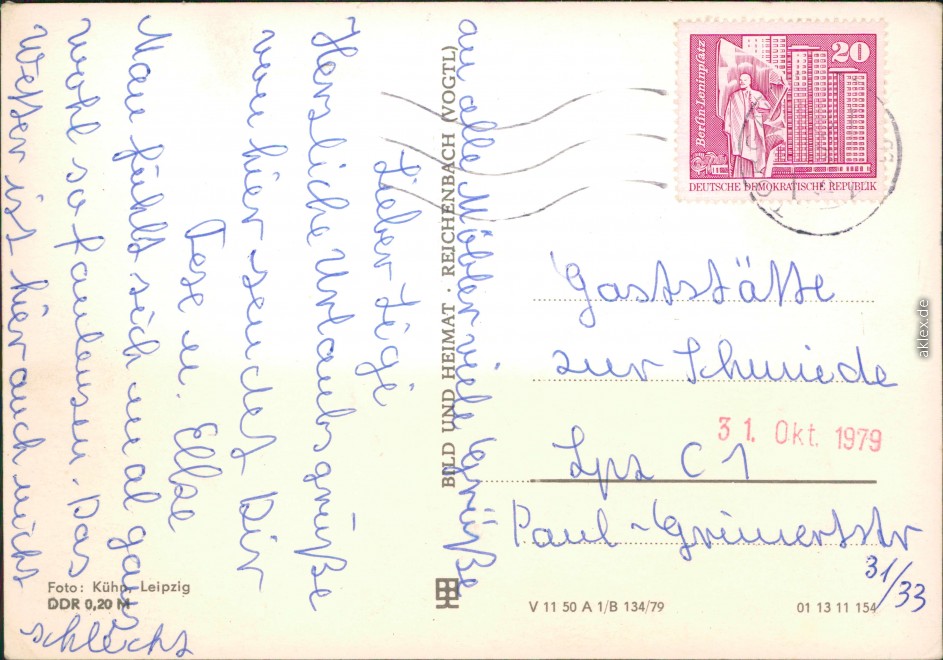 Lieber Jigi
Herzliche Urlaubsgrüße
von hier sendet Dir
u. Else
Man fühlt sich mal ganz
wohl so faulenzen. Das
Wetter ist hier auch nicht
schlecht
an alle Möbler viele Grüße
BILD UND HEIMAT · REICHENBACH (VOGTL)
Berlin-Leninplatz
20
DEUTSCHE DEMOKRATISCHE REPUBLIK
Gaststätte
zur Schmiede
31. Okt. 1979
Lpz C 1
Paul-Grünertstr
31/33
Foto: Kühn, Leipzig
DDR 0,20 M
V 11 50 A 1/B 134/79
01 13 11 154
aklex.de